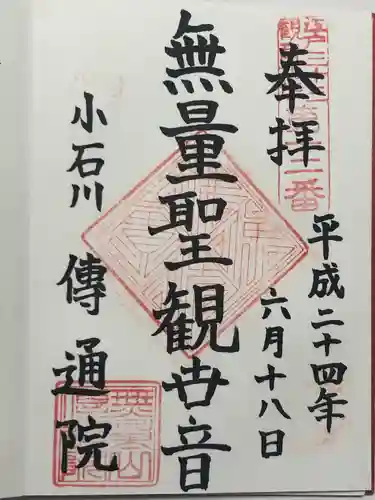 奉拝
平成二十四年
六月十八日
無量聖観世音
小石川
傳通院